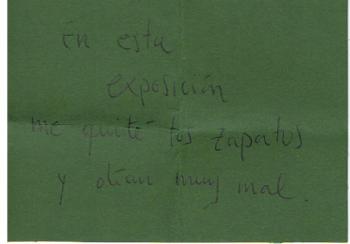 En esta
exposición
me quité los zapatos
y olían muy mal.